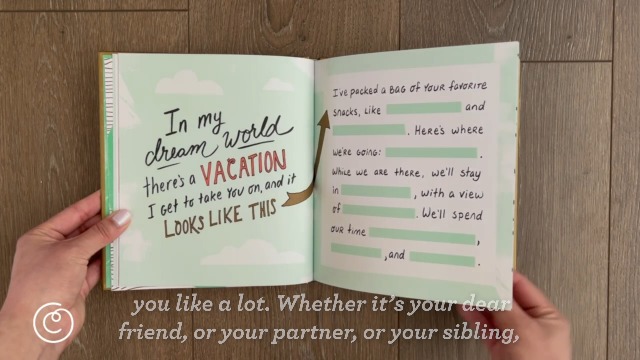 In my
dream world
there's a VACATION
I get to take you on, and it
LOOKS LIKE THIS
I've packed a BAG of your favorite
snacks, like and
. Here's where
we're going: .
While we are there, we'll stay
in , with a view
of . We'll spend
our time ,
, and .
you like a lot. Whether it's your dear
friend, or your partner, or your sibling,